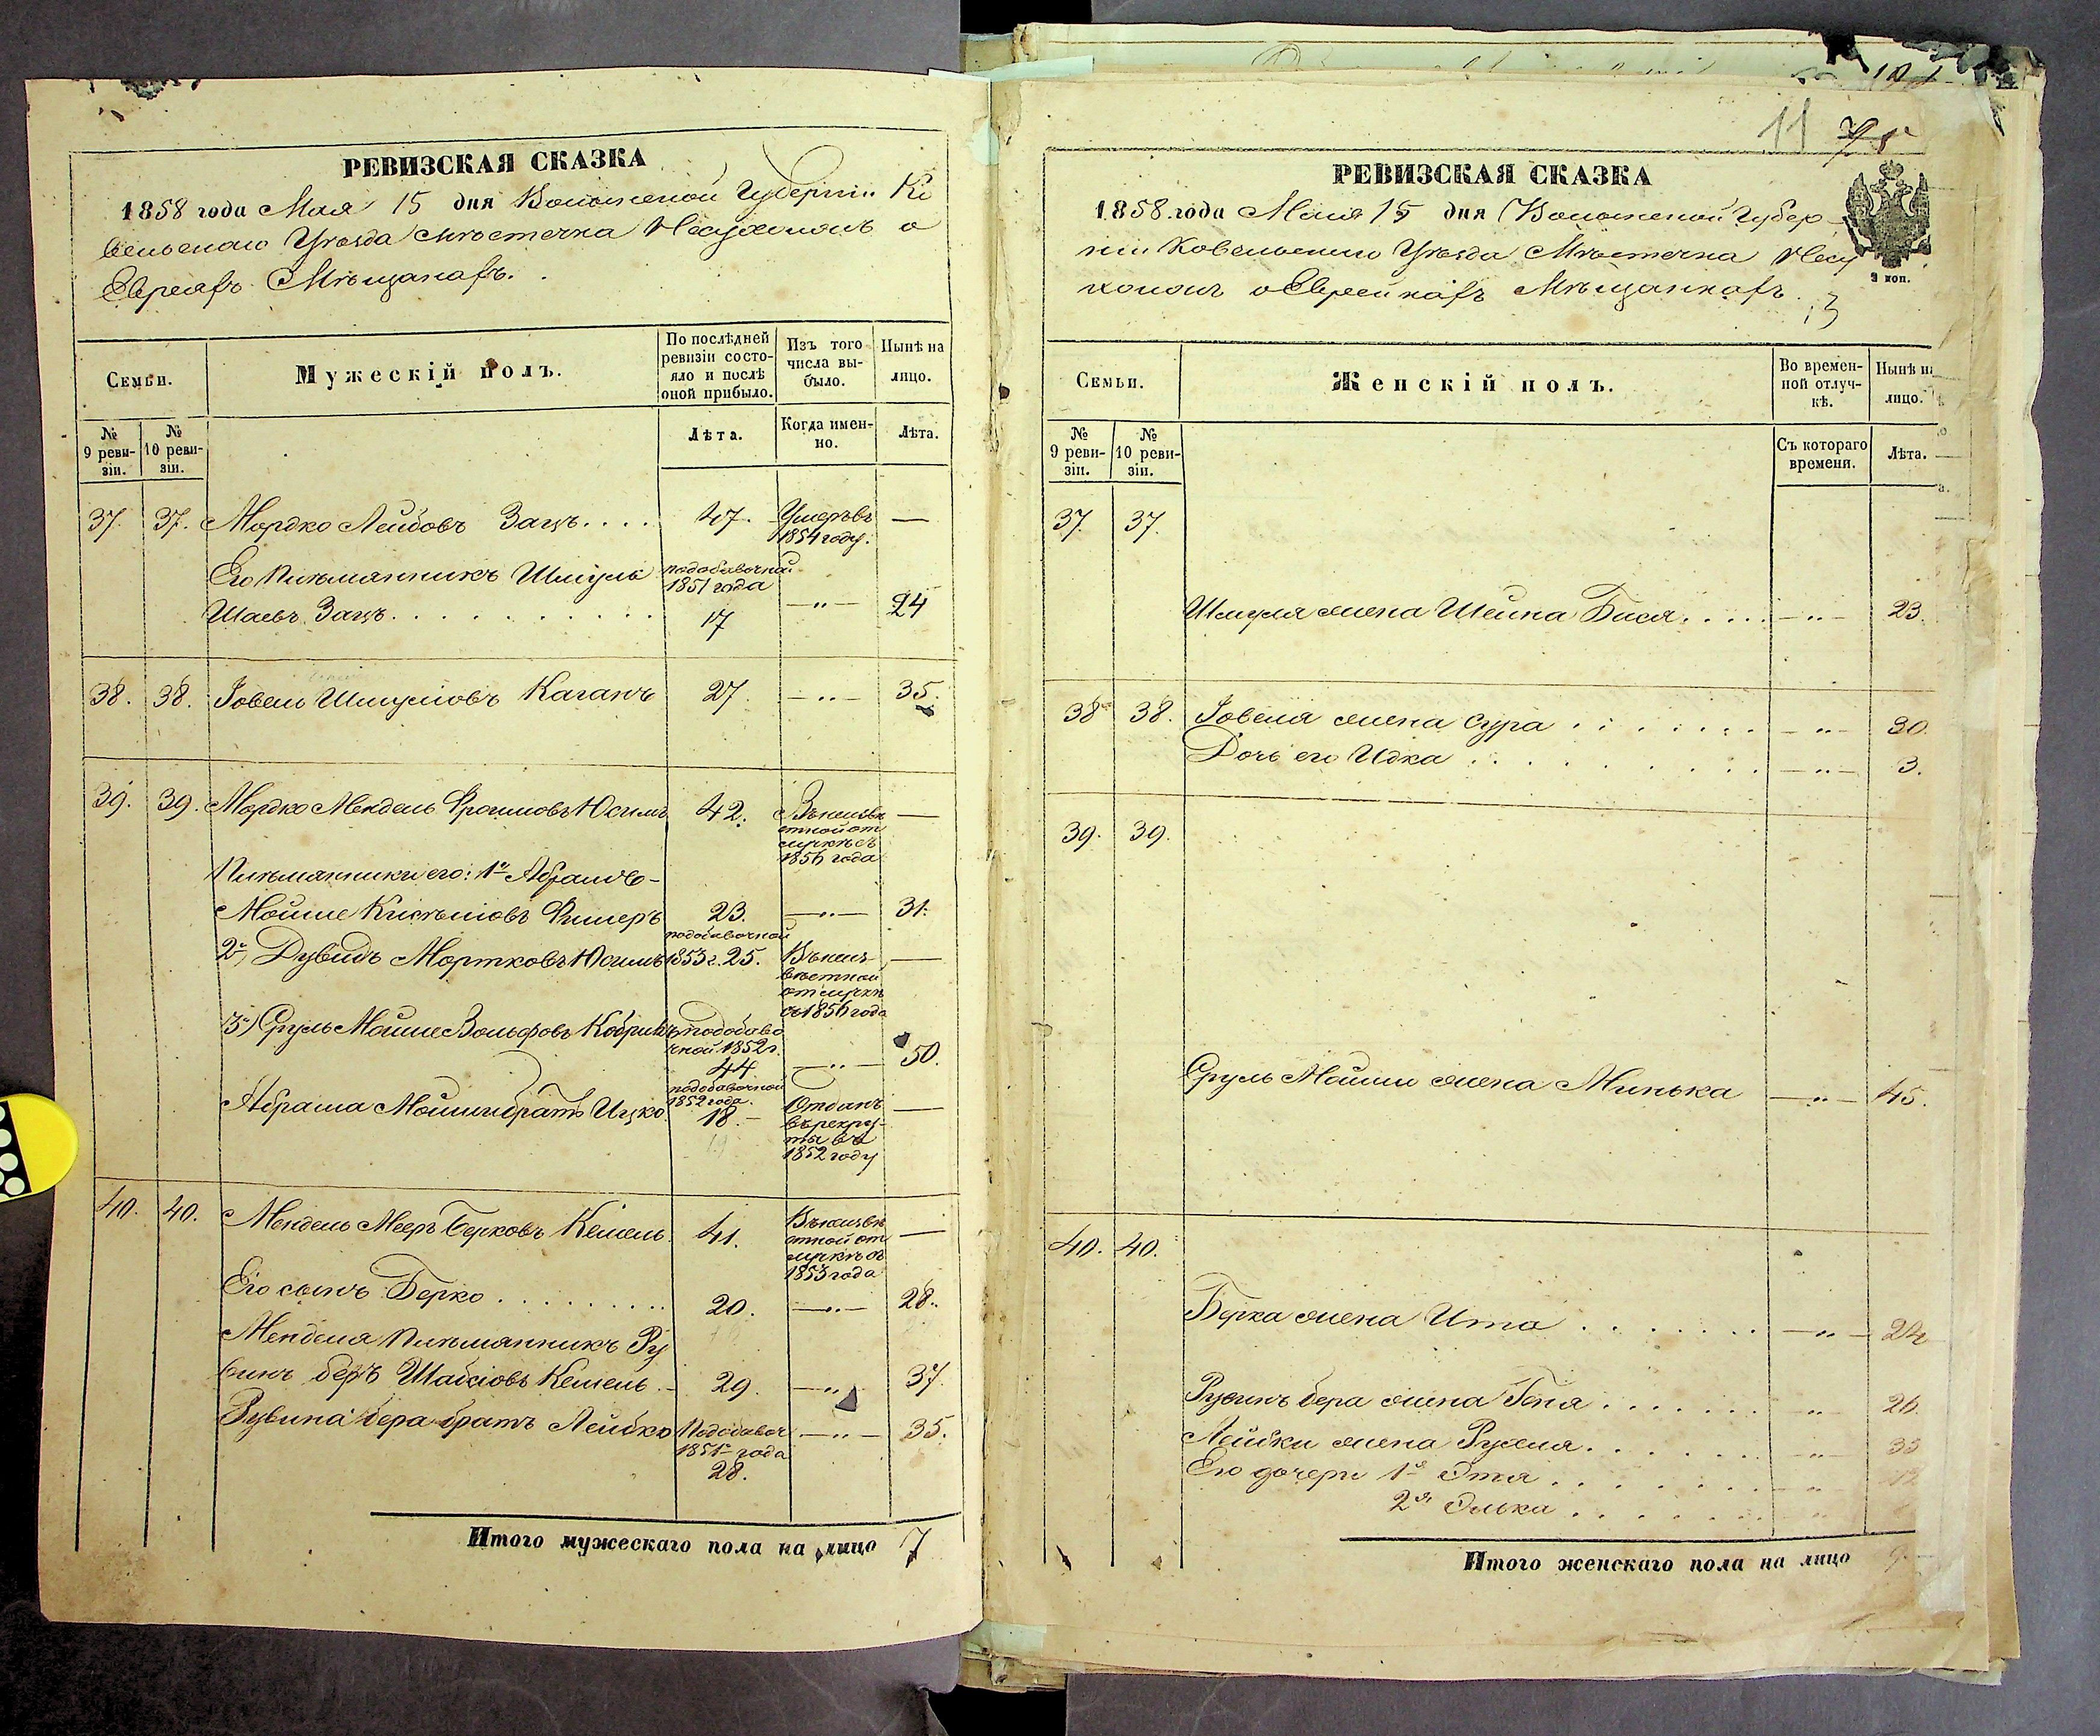 РЕВИЗСКАЯ СКАЗКА
1858 года Мая 15 дня Волынской Губернiи Ко
вельскаго Уѣзда Мѣстечка Несухоижъ о
Евреяхъ Мѣщанахъ.
Семьи.
Мужескiй полъ.
По послѣдней
ревизiи состо-
яло и послѣ
оной прибыло.
Изъ того
числа вы-
было.
Нынѣ на
лицо.
№
9 реви-
зiи.
№
10 реви-
зiи.
Лѣта.
Когда имен-
но.
Лѣта.
37. 37. Мордко Лейбовъ Зацъ.... 47. Умеръ въ —
1854 году.
Его племянникъ Шмуль подобавочной
1851 года
Шаевъ Зацъ. 17 — " — 24
38. 38. Iовель Шмулiовъ Каганъ 27. — " — 35.
39. 39. Мордко Мендель Фроимовъ 42. Въ неизвѣ —
стной от
лучкѣ съ
1856 года
Племянники его: 1й Абрамъ-
Мошие 23. — " — 31.
подобавочной
2й, Дувидъ Мортковъ 1853 г. 25. Въ неиз —
вѣстной
отлучкѣ
съ 1856 года
3й) Сруль Мошие Вольфовъ подобаво
чной 1852 г.
44 — " — 50.
подобавочной
1852 года.
Абрама Мошки братъ Ицко. 18. — Отданъ —
въ рекру-
ты въ
1852 году
40. 40. Мендель Мееръ Берковъ Кемель. 41. Въ неизвѣ —
стной от
лучкѣ съ
1853 года
Его сынъ Берко . . . . . . . . 20. — " — 28.
Менделя племянникъ Ру
бинъ беръ Шабсiовъ Кемель. 29. — " — 37.
Рувина бера братъ Лейбко Подобавоч — " — 35.
1851 года
28.
Итого мужескаго пола на лицо 7
11
РЕВИЗСКАЯ СКАЗКА
1858 года Маiя 15 дня Волынской Губер-
нiи Ковельскаго Уѣзда Мѣстечка Несу
хоижъ о Еврейкахъ Мѣщанкахъ.
3 коп.
Семьи.
Женскiй полъ.
Во времен-
ной отлуч-
кѣ.
Нынѣ на
лицо.
№
9 реви-
зiи.
№
10 реви-
зiи.
Съ котораго
времени.
Лѣта.
37. 37.
Шмуля жена Шейна Бася. . . . . — " — 23.
38 38. Iовеля жена Сура . . . . . . . — " — 30.
Дочь его Идка . . . . . . . . . — " — 3.
39. 39.
Сруль Мошки жена Минька — " — 45.
40. 40.
Берка жена Ита . . . . . . . — " — 24
Рувинъ бера жена Геня . . . . . . . " — 26.
Лейбки жена Рухля. . . . . . . — " — 35
Его дочери 1я Этя . . . . . . . — " — 12
2я Элька . . . . . . .
Итого женскаго пола на лицо 9.